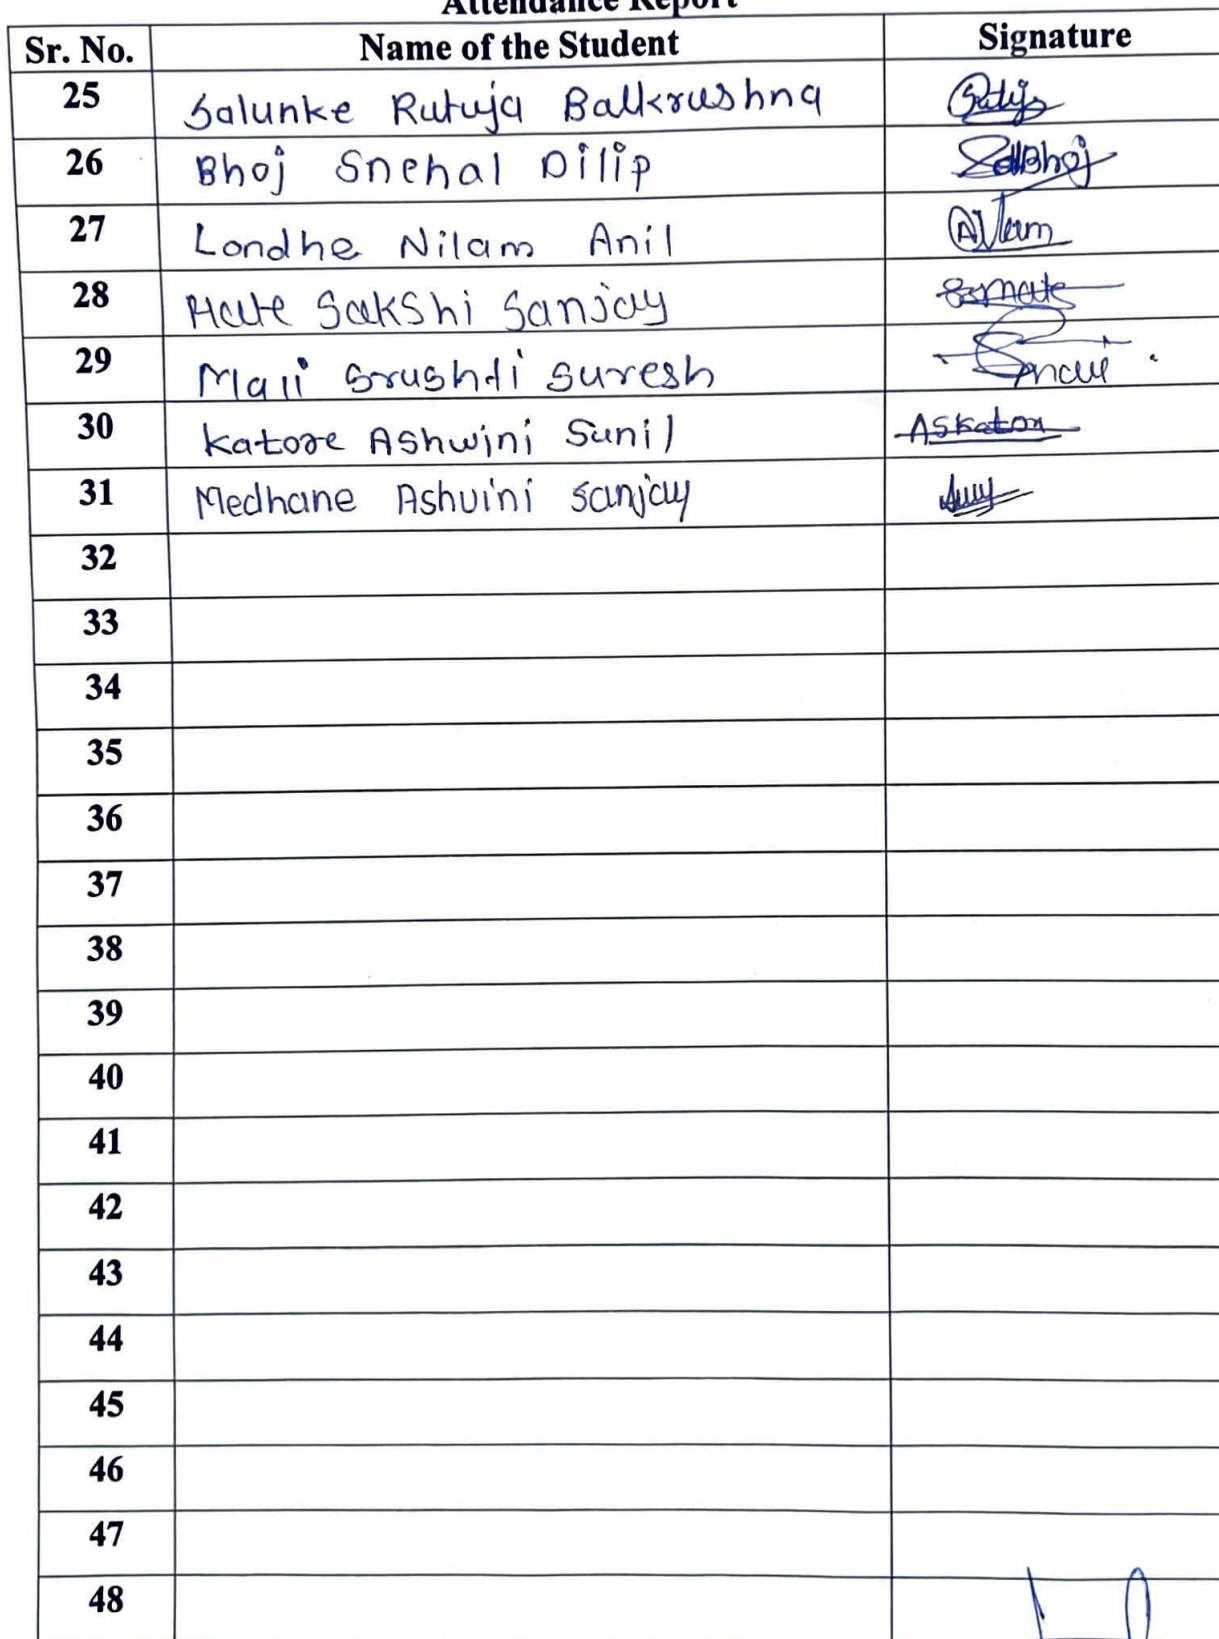 Attendance Report
Sr. No. Name of the Student Signature
25 Salunke Rutuja Balkrushna
26 Bhoj Snehal Dilip SdBhoj
27 Londhe Nilam Anil
28 Mate Sakshi Sanjay SSmate
29 Mali Srushti Suresh
30 Katore Ashwini Sunil ASKatore
31 Medhane Ashvini Sanjay
32
33
34
35
36
37
38
39
40
41
42
43
44
45
46
47
48